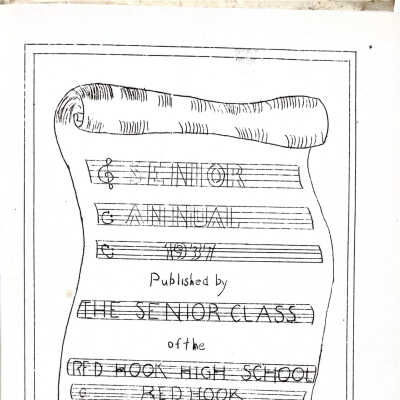 SENIOR
ANNUAL
1937
Published by
THE SENIOR CLASS
of the
RED HOOK HIGH SCHOOL
RED HOOK